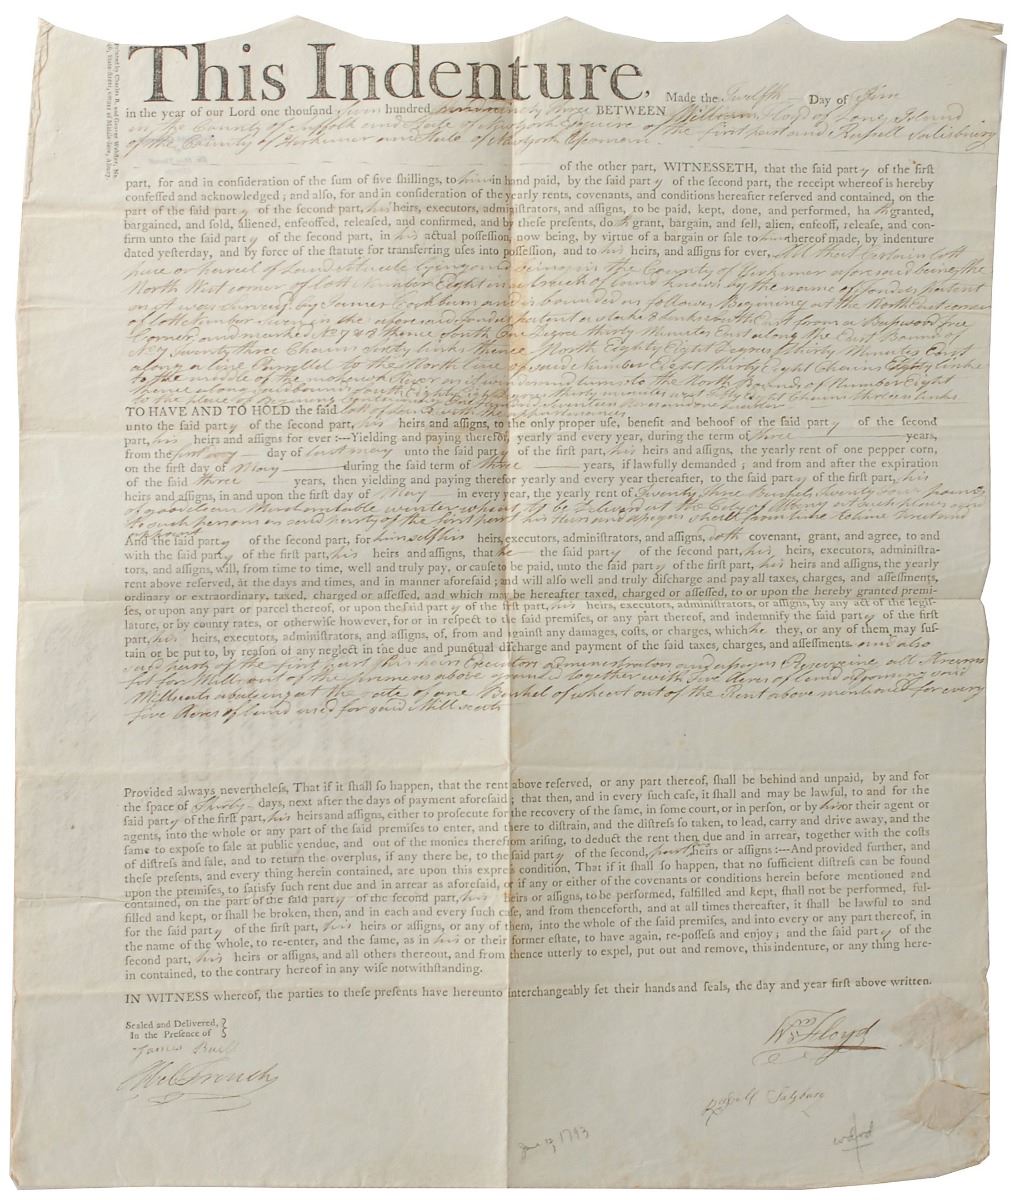 This Indenture,
Made the Twelfth Day of June
in the year of our Lord one thousand seven hundred and ninety three BETWEEN William Floyd of Long Island
in the County of Suffolk and State of Newyork Esquire of the first part and Russell Salisbury
of the County of Herkimer and State of Newyork Yeoman.
of the other part, WITNESSETH, that the said party of the first
part, for and in consideration of the sum of five shillings, to him in hand paid, by the said party of the second part, the receipt whereof is hereby
confessed and acknowledged; and also, for and in consideration of the yearly rents, covenants, and conditions hereafter reserved and contained, on the
part of the said party of the second part, his heirs, executors, administrators, and assigns, to be paid, kept, done, and performed, hath granted,
bargained, and sold, aliened, enfeoffed, released, and confirmed, and by these presents, doth grant, bargain, and sell, alien, enfeoff, release, and con-
firm unto the said party of the second part, in his actual possession, now being, by virtue of a bargain or sale to him thereof made, by indenture
dated yesterday, and by force of the statute for transferring uses into possession, and to his heirs, and assigns for ever, All that Certain lott
piece or parcel of Land situate lying and being in the County of Herkimer aforesaid being the
North West corner of lott Number Eight in a tract of land known by the name of fondas patent
as it was surveyed by James Cockburn and is bounded as follows Begining at the North East corner
of lott Number Seven in the aforesaid fondas patent a stake & 8 links to the East from a Basswood tree
Corner, and marked No 7 & 8 thence South One Degree thirty Minutes East along the East Bounds of
No 7 Seventy three Chains Sixty links thence North Eighty Eight Degrees & thirty Minutes East
along a line Parallel to the North line of said Number Eight thirty Eight Chains Eighty links
to the middle of the mohawk River as it winds and turns to the North Bounds of Number Eight
thence along said bounds South Eighty Eight Degrees thirty minutes west Fifty Eight Chains thirteen links
to the place of Begining
TO HAVE AND TO HOLD the said lott of land with the appurtenances
unto the said party of the second part, his heirs and assigns, to the only proper use, benefit and behoof of the said party of the second
part, his heirs and assigns for ever:---Yielding and paying therefor, yearly and every year, during the term of three years,
from the first day day of last may unto the said party of the first part, his heirs and assigns, the yearly rent of one pepper corn,
on the first day of May during the said term of three years, if lawfully demanded; and from and after the expiration
of the said three years, then yielding and paying therefor yearly and every year thereafter, to the said party of the first part, his
heirs and assigns, in and upon the first day of May in every year, the yearly rent of Twenty three Bushels Twenty four pounds
of good clean Merchantable winter wheat, to be Delivered at the City of Albany at such place and
to such person as said party of the first part his Heirs and assigns shall from time to time direct and
appoint
And the said party of the second part, for himself his heirs, executors, administrators, and assigns, doth covenant, grant, and agree, to and
with the said party of the first part, his heirs and assigns, that he the said party of the second part, his heirs, executors, administra-
tors, and assigns, will, from time to time, well and truly pay, or cause to be paid, unto the said party of the first part, his heirs and assigns, the yearly
rent above reserved, at the days and times, and in manner aforesaid; and will also well and truly discharge and pay all taxes, charges, and assessments,
ordinary or extraordinary, taxed, charged or assessed, and which may be hereafter taxed, charged or assessed, to or upon the hereby granted premi-
ses, or upon any part or parcel thereof, or upon the said party of the first part, his heirs, executors, administrators, or assigns, by any act of the legis-
lature, or by county rates, or otherwise however, for or in respect to the said premises, or any part thereof, and indemnify the said party of the first
part, his heirs, executors, administrators, and assigns, of, from and against any damages, costs, or charges, which he they, or any of them, may sus-
tain or be put to, by reason of any neglect in the due and punctual discharge and payment of the said taxes, charges, and assessments. and also
said party of the first part his heirs Executors administrators and assigns Reserveing all Streams
fit for Mills out of the premises above granted together with Five Acres of land adjoining said
Millseats abateing at the rate of one Bushel of wheat out of the Rent above mentioned for every
five Acres of land used for said Mill seats
Provided always nevertheless, That if it shall so happen, that the rent above reserved, or any part thereof, shall be behind and unpaid, by and for
the space of Thirty days, next after the days of payment aforesaid; that then, and in every such case, it shall and may be lawful, to and for the
said party of the first part, his heirs and assigns, either to prosecute for the recovery of the same, in some court, or in person, or by his or their agent or
agents, into the whole or any part of the said premises to enter, and there to distrain, and the distress so taken, to lead, carry and drive away, and the
same to expose to sale at public vendue, and out of the monies therefrom arising, to deduct the rent then due and in arrear, together with the costs
of distress and sale, and to return the overplus, if any there be, to the said party of the second, part his heirs or assigns:---And provided further, and
these presents, and every thing herein contained, are upon this express condition, That if it shall so happen, that no sufficient distress can be found
upon the premises, to satisfy such rent due and in arrear as aforesaid, or if any or either of the covenants or conditions herein before mentioned and
contained, on the part of the said party of the second part, his heirs or assigns, to be performed, fulfilled and kept, shall not be performed, ful-
filled and kept, or shall be broken, then, and in each and every such case, and from thenceforth, and at all times thereafter, it shall be lawful to and
for the said party of the first part, his heirs or assigns, or any of them, into the whole of the said premises, and into every or any part thereof, in
the name of the whole, to re-enter, and the same, as in his or their former estate, to have again, re-possess and enjoy; and the said party of the
second part, his heirs or assigns, and all others thereout, and from thence utterly to expel, put out and remove, this indenture, or any thing here-
in contained, to the contrary hereof in any wise notwithstanding.
IN WITNESS whereof, the parties to these presents have hereunto interchangeably set their hands and seals, the day and year first above written.
Sealed and Delivered,
In the Presence of
James Buell
Abel French
Wm Floyd
Russell Salsbury
June 12, 1793